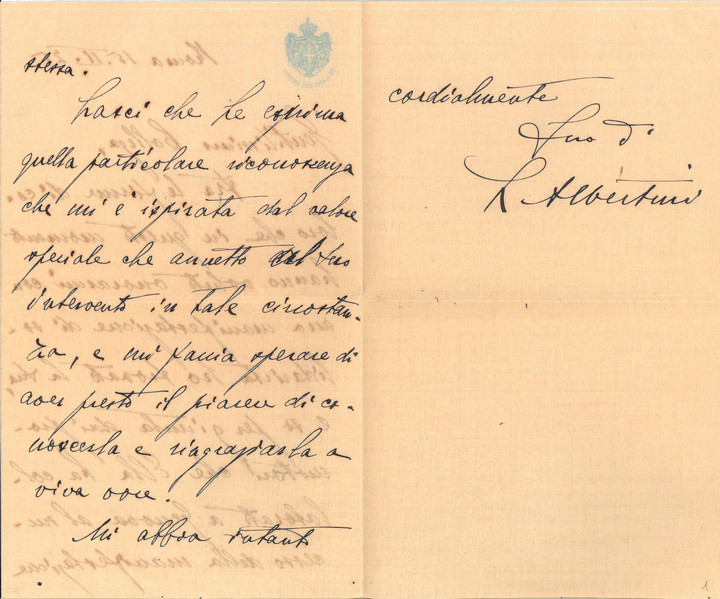 stessa.
Lasci che Le esprima
quella particolare riconoscenza
che mi è ispirata dal valore
speciale che annetto al Suo
intervento in tale circostan-
za, e mi faccia sperare di
aver presto il piacere di co-
noscerla e ringraziarla a
viva voce.
Mi abbia intanto
cordialmente
Suo d
L Albertini
1